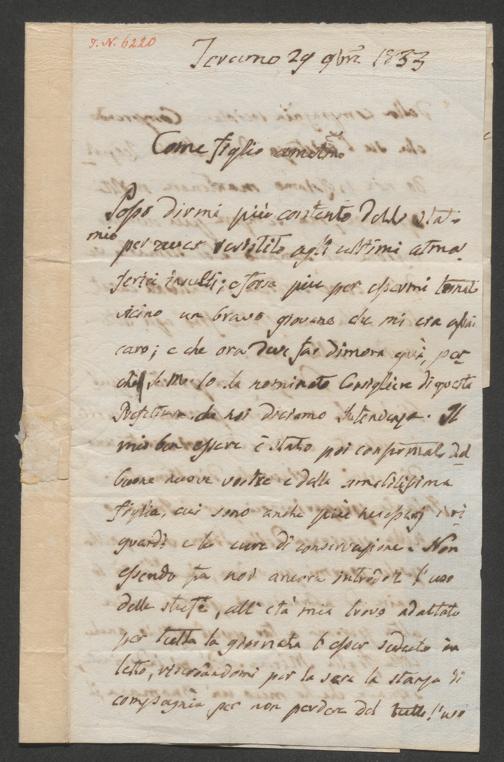 J. N. 6220
Teramo 29 9bre 1833
Come figlio amatmo
Posso dirmi più contento dello stato
mio
per aver resistito agli ultimi atmo
sferici insulti; e forse più per essermi tornato
vicino un bravo giovane che mi era assai
caro; e che ora deve far dimora quà, per
chè il Re lo ha nominato Consigliere di questa
Prefettura da noi diciamo Intendenza. Il
mio ben essere è stato poi confermato dal
buone nuove vostre e della amabilissima
figlia, cui sono anche più necessarj i ri
guardi e le cure di conservazione. Non
essendo fra noi ancora introdott l'uso
delle stufe, all'età mia trovo adattato
per tutta la giornata l'esser seduto in
letto, riserbandomi per la sera la stanza di
compagnia per non perder del tutto l'uso